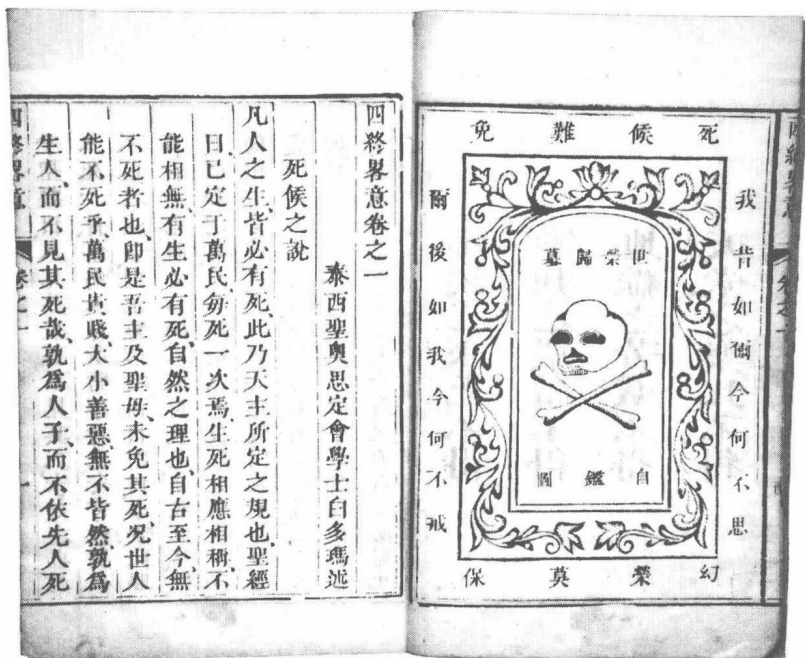 四終畧意
死候難免
我昔如爾今何不思
世榮歸墓
自鑑圖
爾後如我今何不戒
幻榮莫保
四終畧意卷之一
泰西聖奧思定會學士白多瑪述
死候之說
凡人之生、皆必有死、此乃天主所定之規也、聖經
曰、已定于萬民、每死一次焉、生死相應相稱、不
能相無、有生必有死、自然之理也、自古至今、無
不死者也、即是吾主及聖母、未免其死、况世人
能不死乎、萬民貴賤大小善惡、無不皆然、孰爲
生人、而不見其死哉、孰爲人子、而不依先人死
四終畧意 卷之一 一